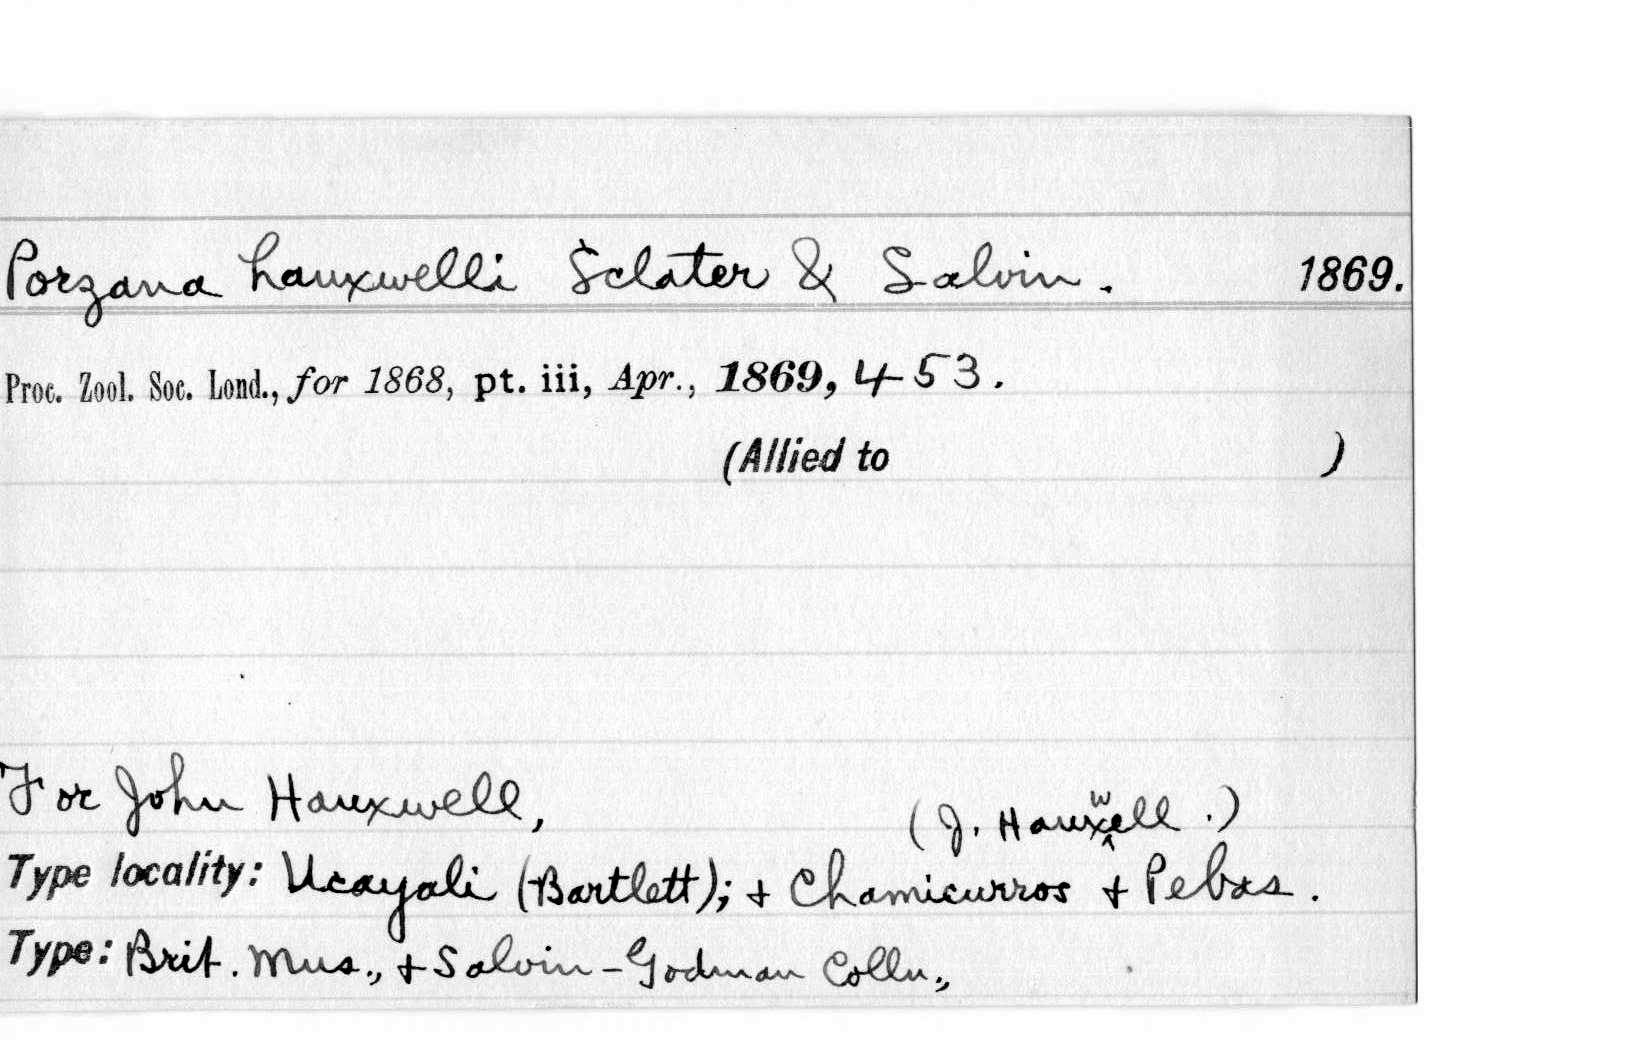 Porzana hauxwelli Sclater & Salvin. 1869.
Proc. Zool. Soc. Lond., for 1868, pt. iii, Apr., 1869, 453.
(Allied to )
For John Hauxwell, (J. Hauxwell.)
Type locality: Ucayali (Bartlett); + Chamicurros + Pebas.
Type: Brit. Mus., + Salvin-Godman Colln.,